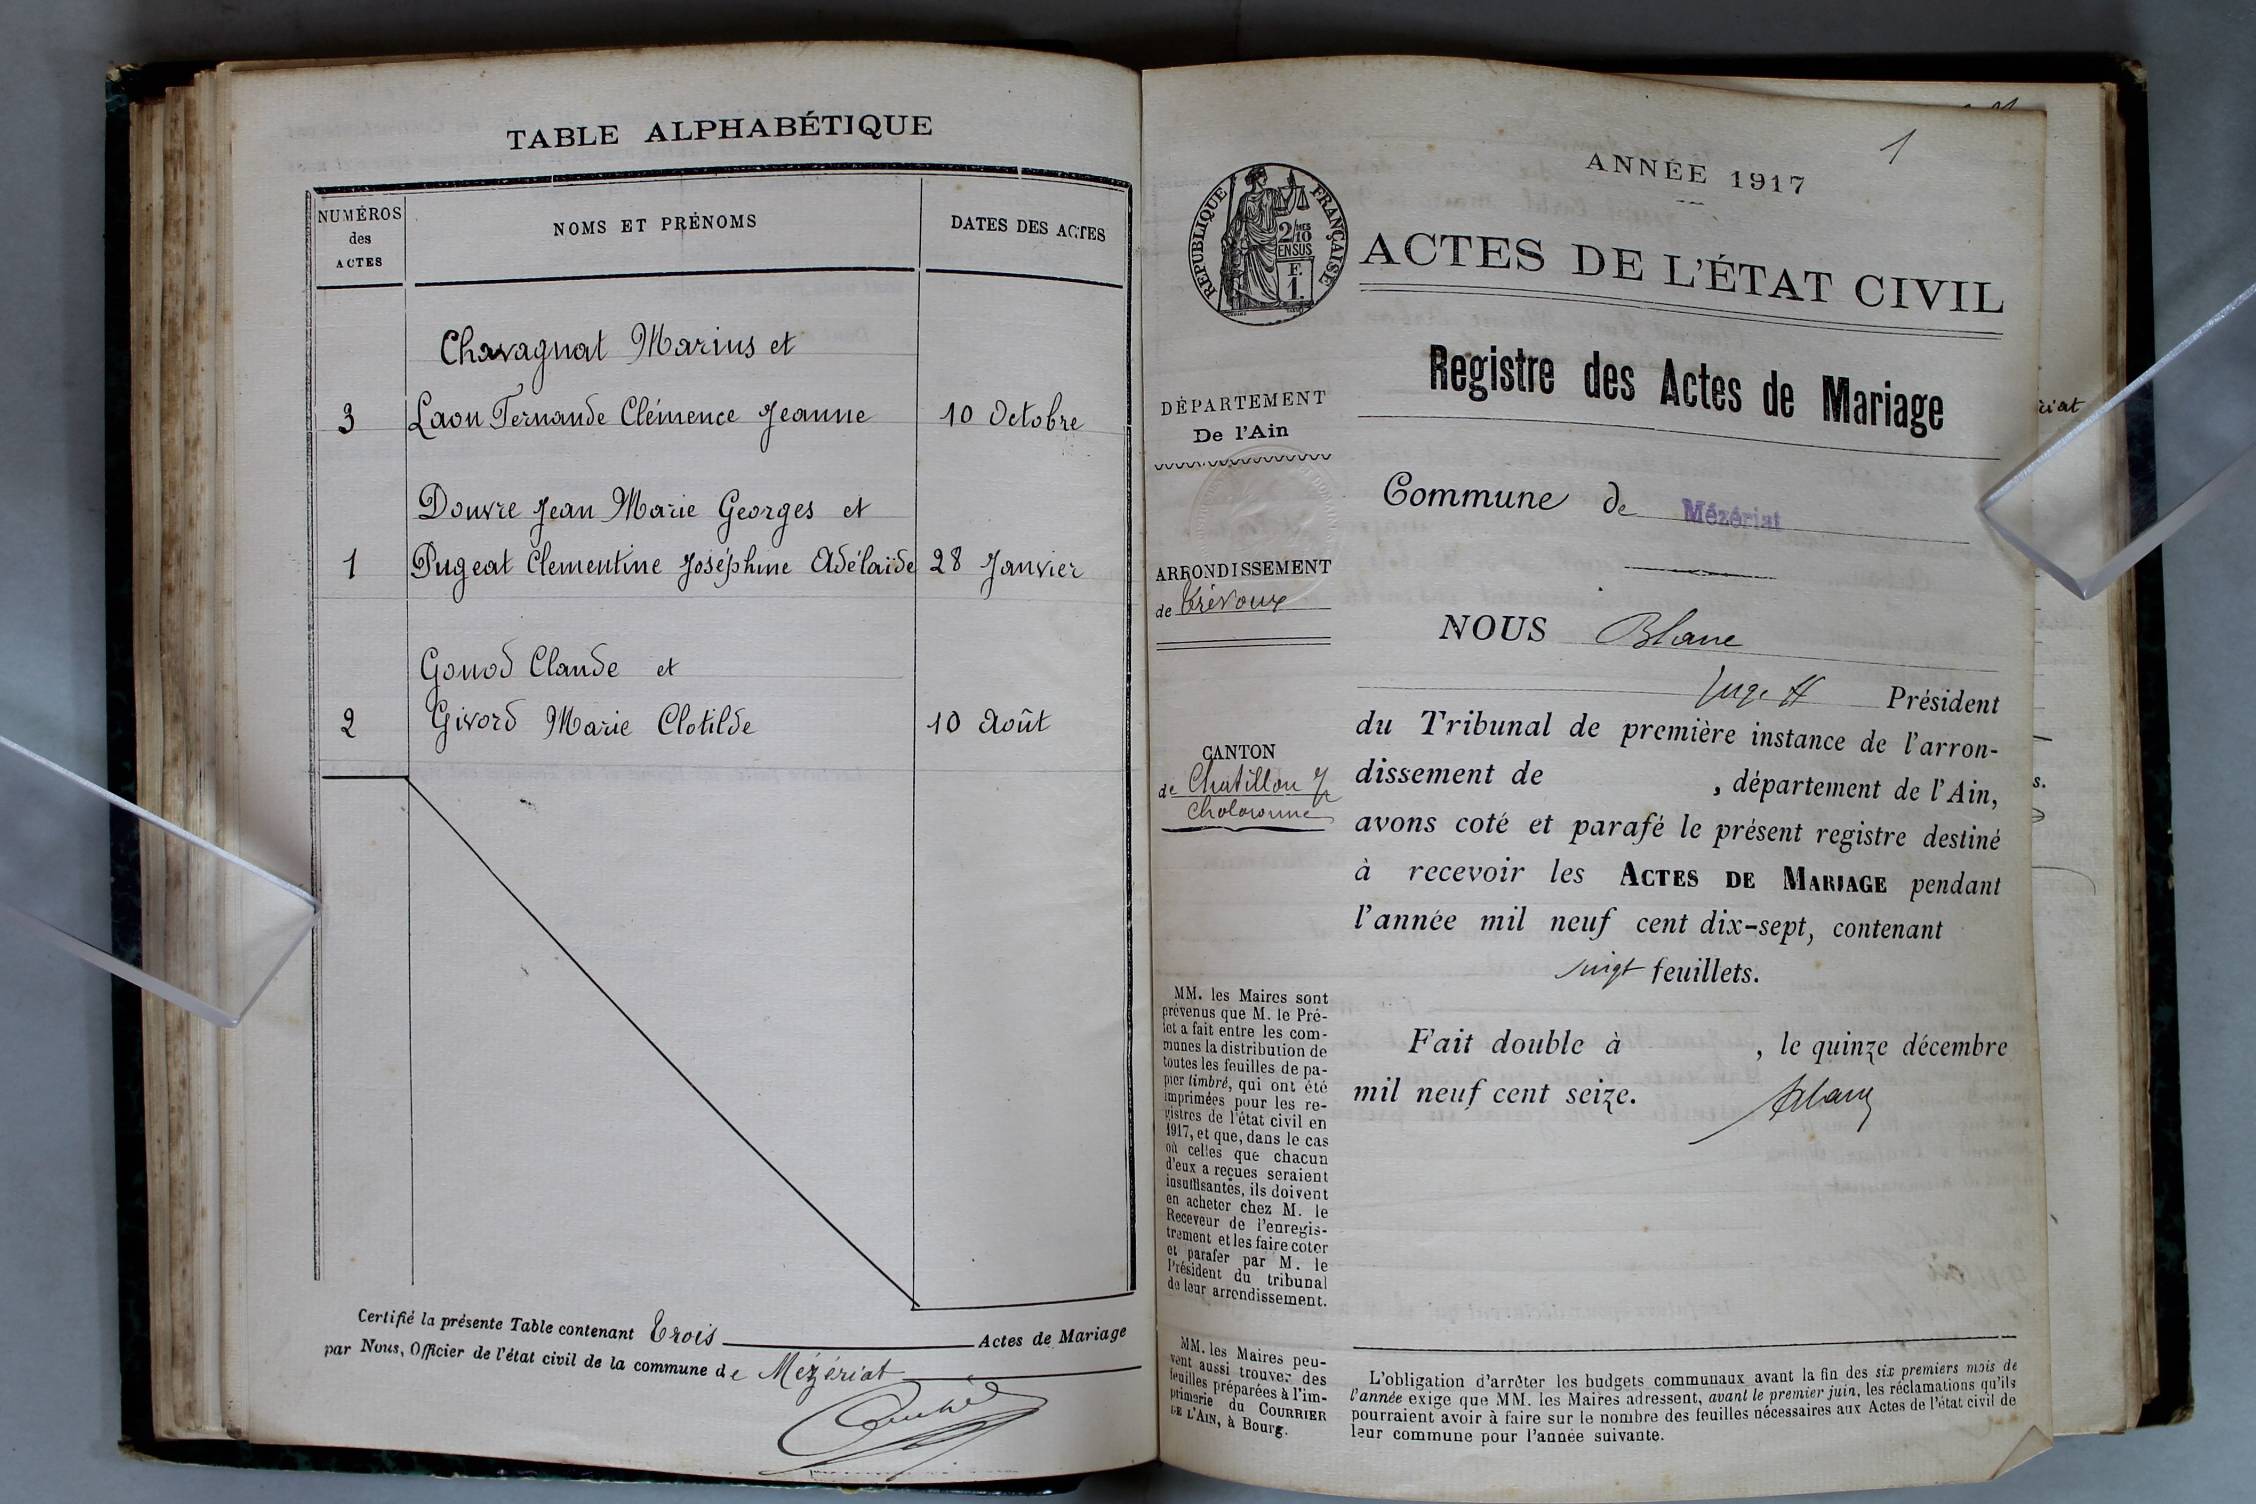 TABLE ALPHABÉTIQUE
NUMÉROS
des
ACTES
NOMS ET PRÉNOMS
DATES DES ACTES
Chavagnat Marius et
3 Laon Fernande Clémence Jeanne 10 Octobre
Douvre Jean Marie Georges et
1 Pugeat Clementine Joséphine Adélaïde 28 Janvier
Gonod Claude et
2 Givord Marie Clotilde 10 Août
Certifié la présente Table contenant Trois Actes de Mariage
par Nous, Officier de l'état civil de la commune de Mézériat
1
ANNÉE 1917
RÉPUBLIQUE FRANÇAISE
2/10 MES
EN SUS
F.
1.
ACTES DE L'ÉTAT CIVIL
Registre des Actes de Mariage
DÉPARTEMENT
De l'Ain
ARRONDISSEMENT
de Trévoux
CANTON
de Chatillon s/
Chalaronne
MM. les Maires sont
prévenus que M. le Pré-
fet a fait entre les com-
munes la distribution de
toutes les feuilles de pa-
pier timbré, qui ont été
imprimées pour les re-
gistres de l'état civil en
1917, et que, dans le cas
où celles que chacun
d'eux a reçues seraient
insuffisantes, ils doivent
en acheter chez M. le
Receveur de l'enregis-
trement et les faire coter
et parafer par M. le
Président du tribunal
de leur arrondissement.
MM. les Maires peu-
vent aussi trouver des
feuilles préparées à l'im-
primerie du COURRIER
DE L'AIN, à Bourg.
Commune de Mézériat
NOUS Blanc
Juge ff Président
du Tribunal de première instance de l'arron-
dissement de , département de l'Ain,
avons coté et parafé le présent registre destiné
à recevoir les ACTES DE MARIAGE pendant
l'année mil neuf cent dix-sept, contenant
vingt feuillets.
Fait double à , le quinze décembre
mil neuf cent seize.
Blanc
L'obligation d'arrêter les budgets communaux avant la fin des six premiers mois de
l'année exige que MM. les Maires adressent, avant le premier juin, les réclamations qu'ils
pourraient avoir à faire sur le nombre des feuilles nécessaires aux Actes de l'état civil de
leur commune pour l'année suivante.
riat
s.